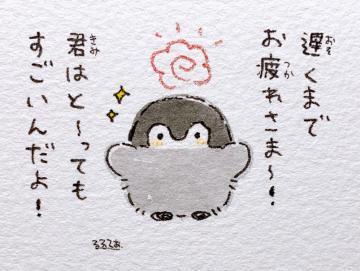 遅くまで
お疲れさま〜!
君はと〜っても
すごいんだよ!
るるてあ